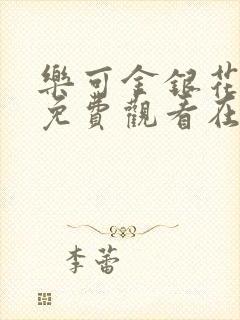 樂可金銀花
免費觀看在
李蕾